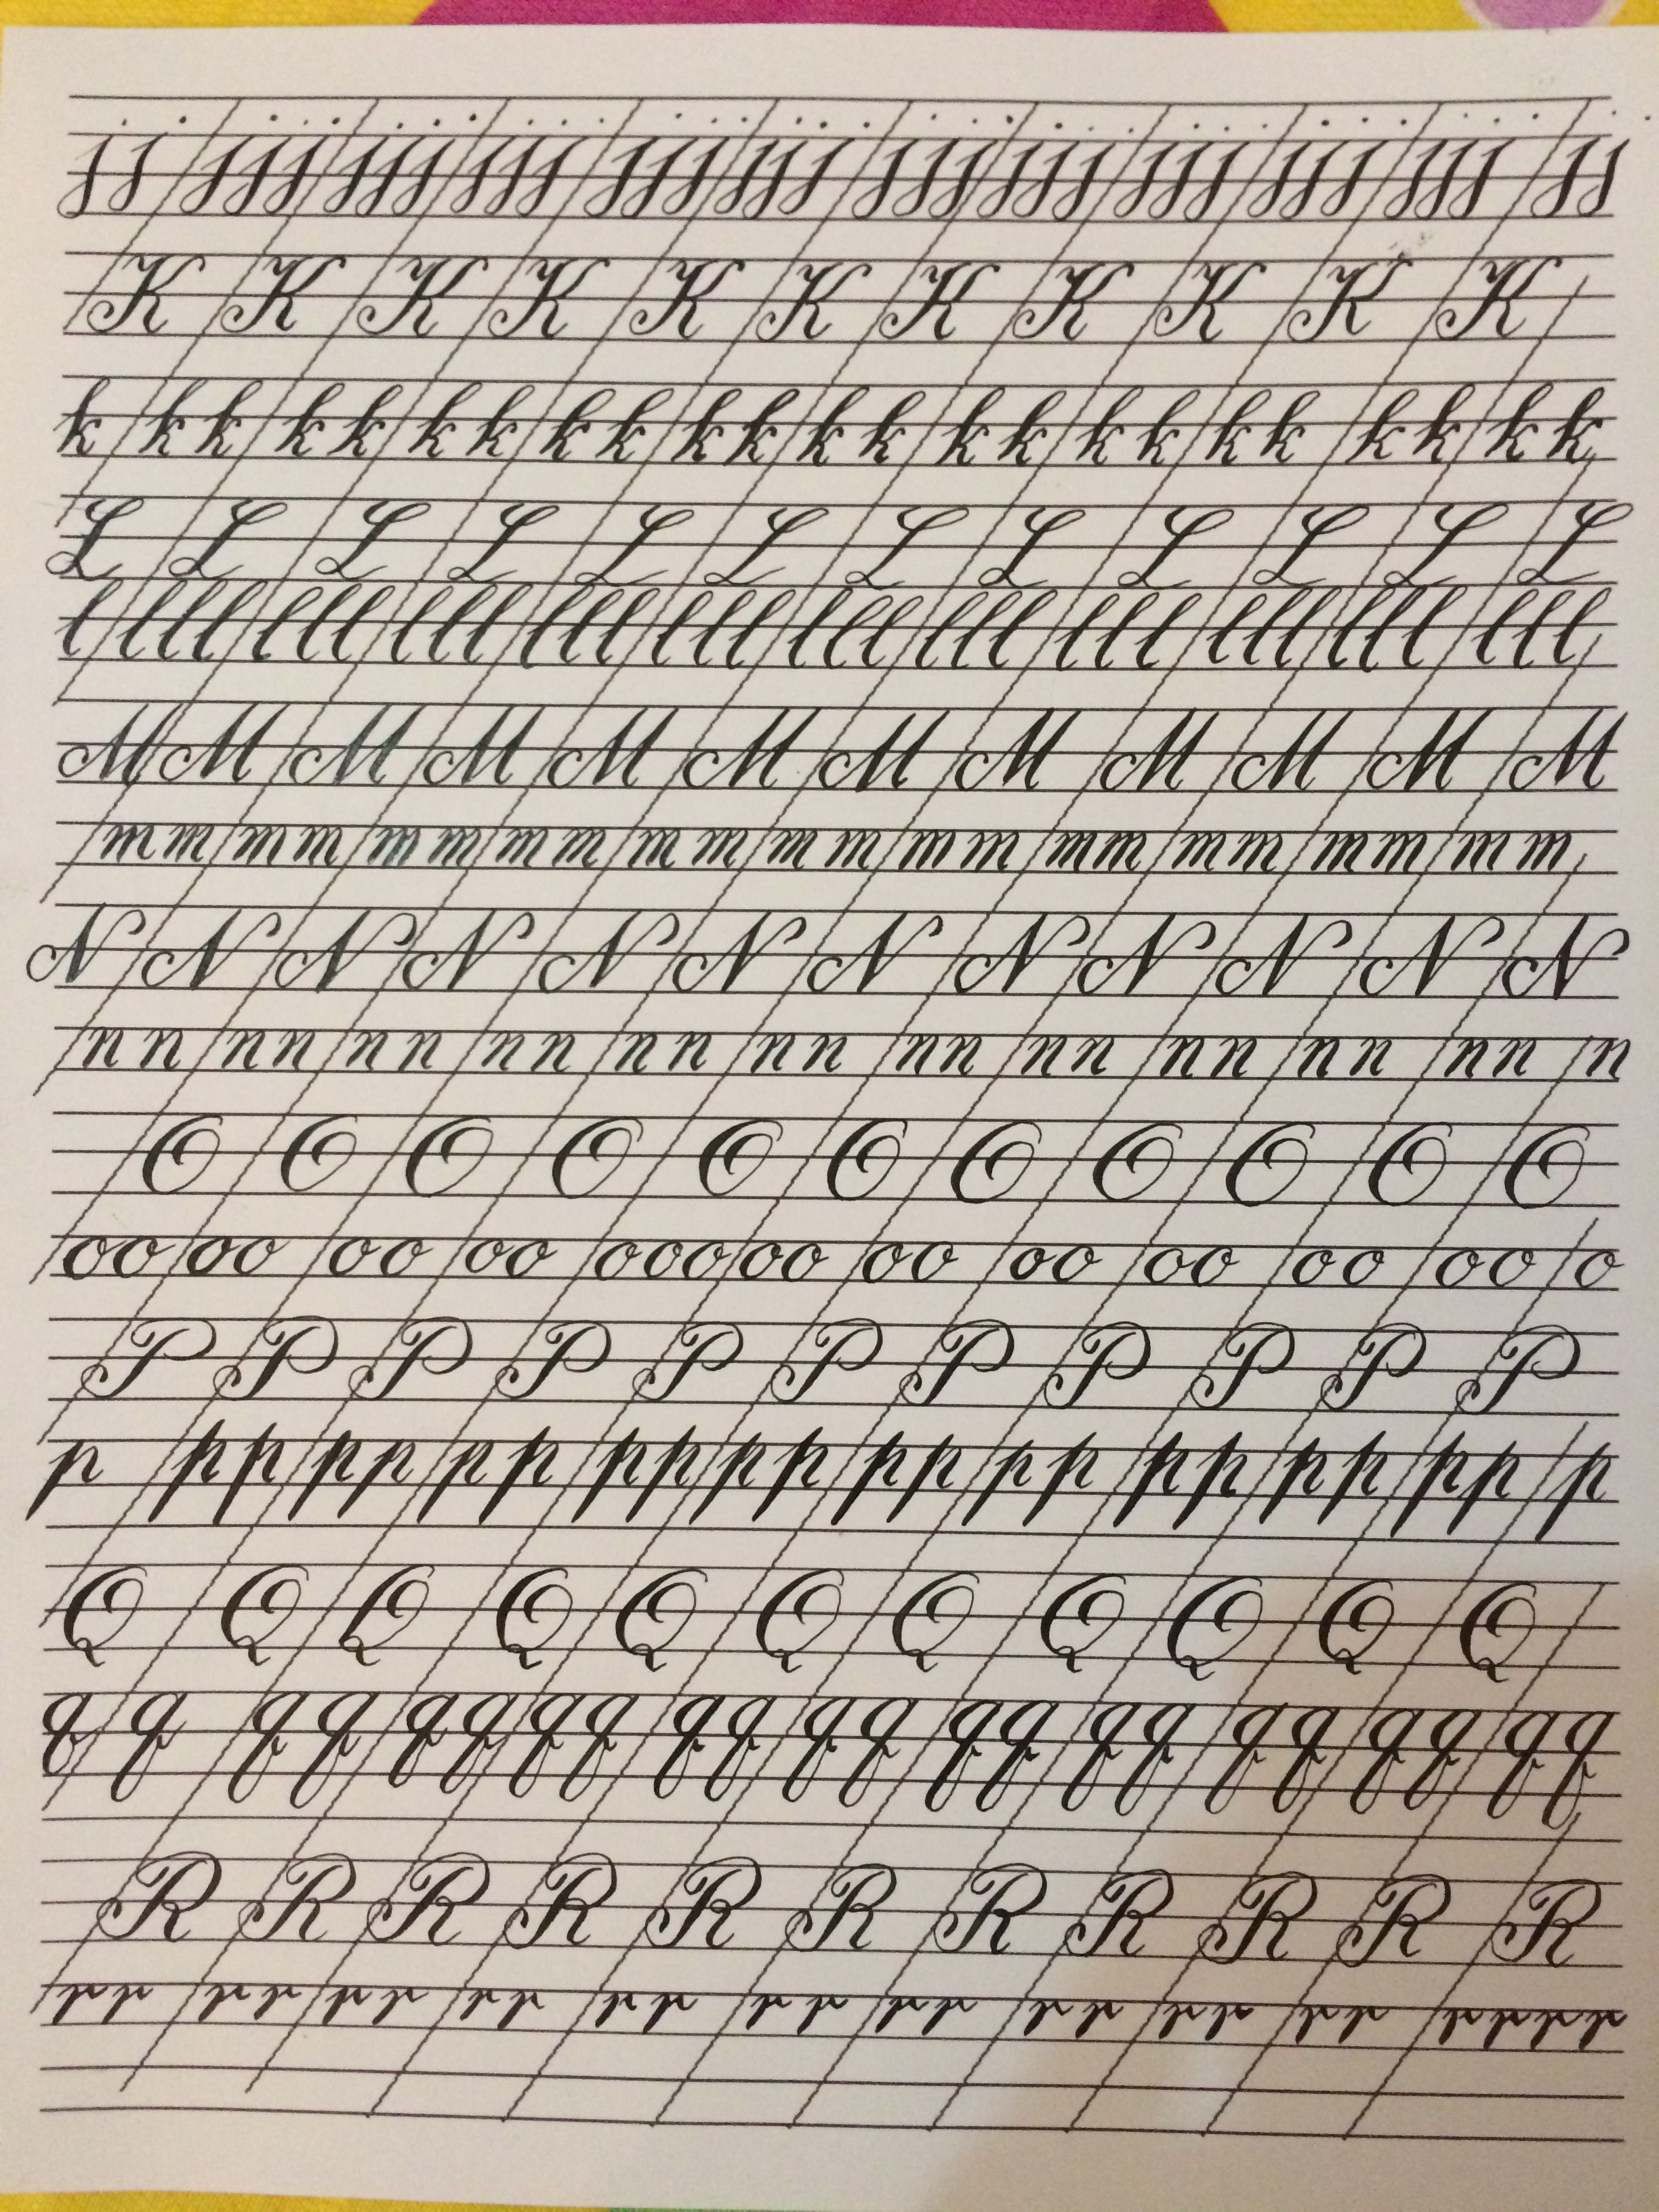 jj jjj jjj jjj jjj jjj jjj jjj jjj jjj jjj jj
K K K K K K K K K K K
k kk kk kk kk kk kk kk kk kk kk kk
L L L L L L L L L L L L
l llll lll lll lll lll lll lll lll lll lll lll
M M M M M M M M M M M M
mm mm mm mm mm mm mm mm mm mm mm
N N N N N N N N N N N N
nn nn nn nn nn nn nn nn nn nn nn n
O O O O O O O O O O O
oo oo oo oo ooo oo oo oo oo oo oo o
P P P P P P P P P P P
p pp pp pp pp pp pp pp pp pp pp p
Q Q Q Q Q Q Q Q Q Q Q
q q qq qq qq qq qq qq qq qq qq qq
R R R R R R R R R R R
rr rr rr rr rr rr rr rr rr rr rrrr